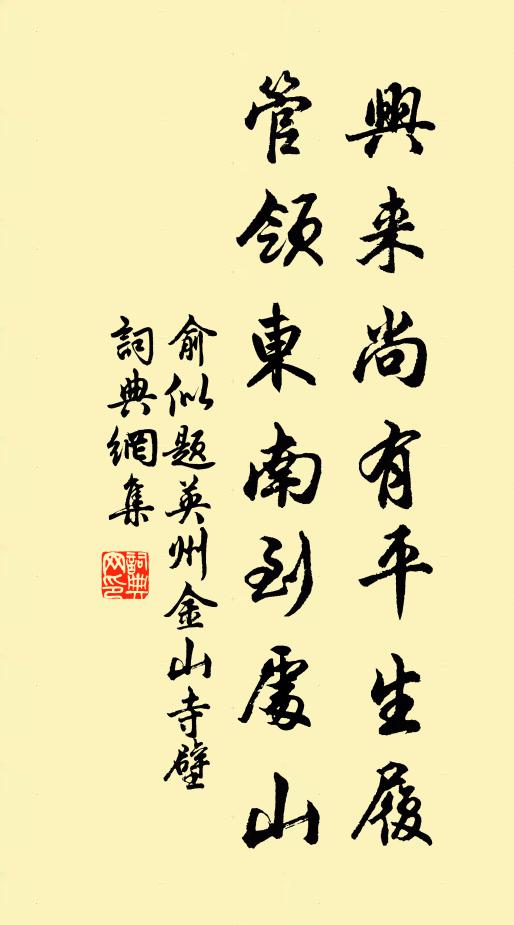 興来尚有平生履
管領東南到處山
俞似题英州金山寺壁
詞典網集
詞典网印